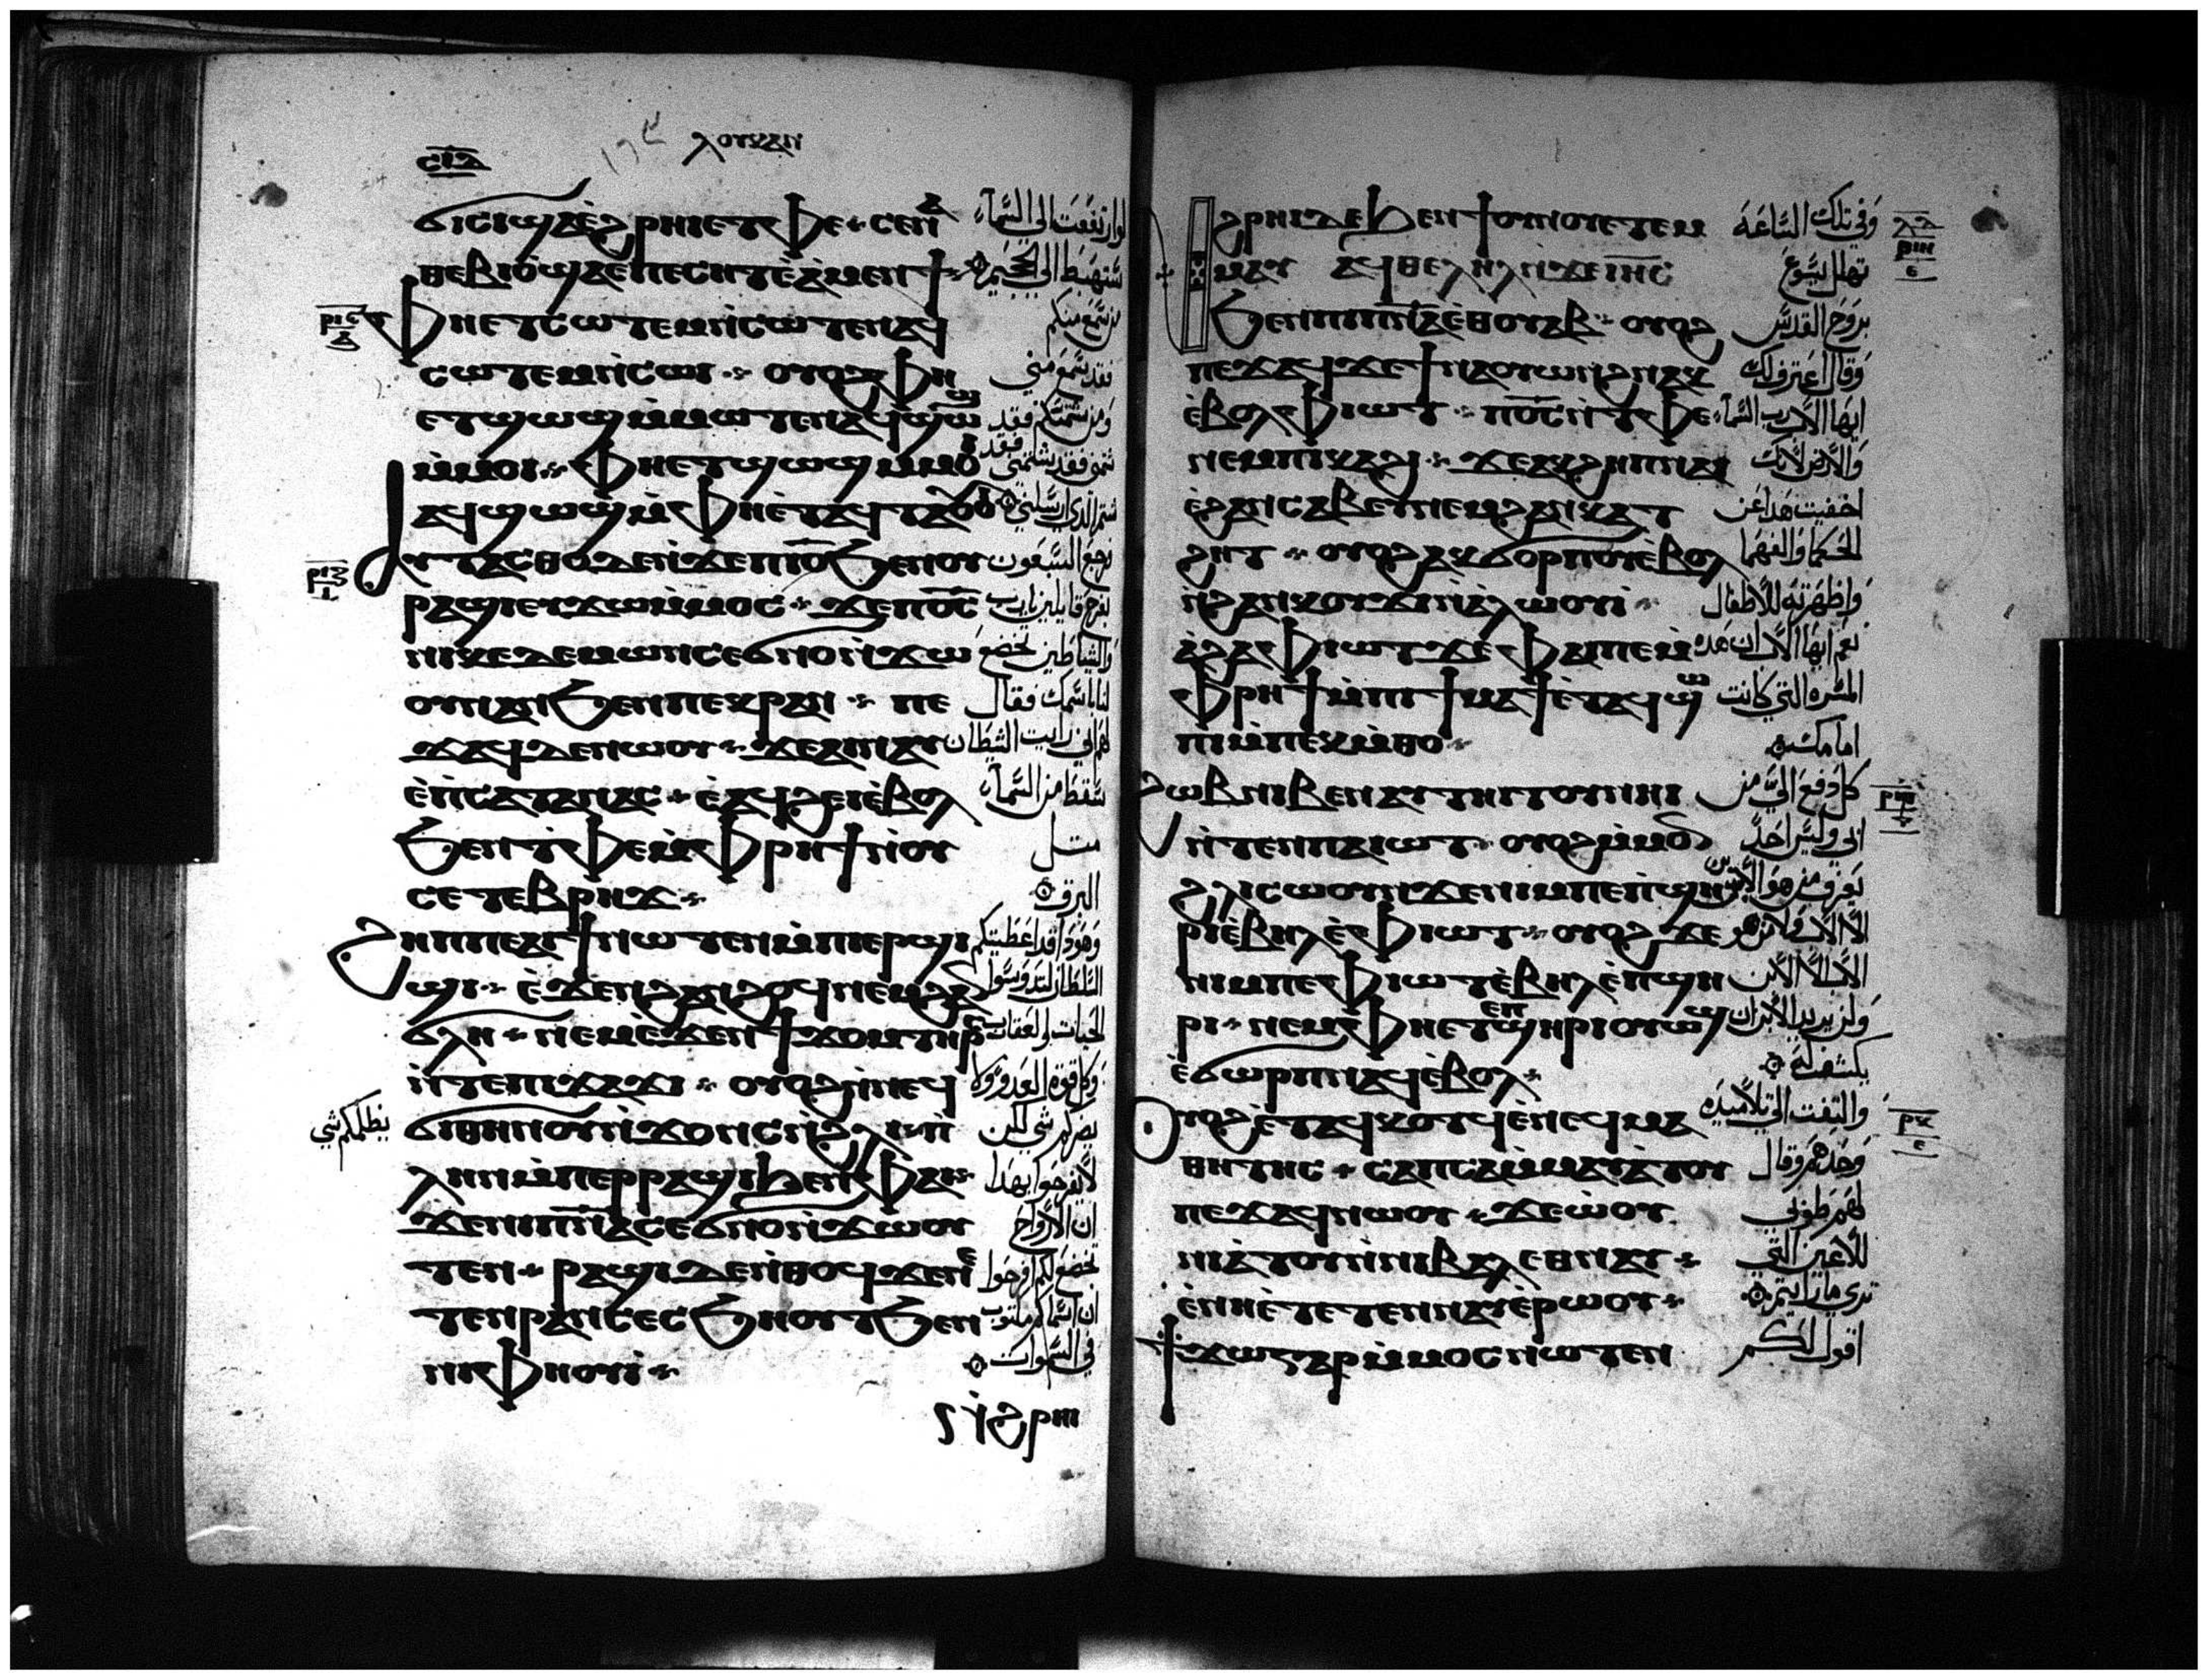 ⲥⲓⲁ ⲗⲟⲩⲕⲁⲛ
ϭⲓⲥⲓ ϣⲁ ⲉ̀ϩⲣⲏⲓ ⲉⲧⲫⲉ ⲥⲉⲛⲁ
ⲑⲉⲃⲓⲟ̀ ϣⲁ ⲉⲡⲉⲥⲏⲧ ⲉ̀ⲁ̀ⲙⲉⲛϯ
ⲫⲏⲉⲧⲥⲱⲧⲉⲙ ⲛ̀ⲥⲱⲧⲉⲛ ⲁϥ
ⲥⲱⲧⲉⲙ ⲛ̀ⲥⲱⲓ ⲟⲩⲟϩ ⲫⲏ
ⲉⲧϣⲱϣ ⲙ̀ⲙⲱⲧⲉⲛ ⲁϥϣⲱϣ
ⲙ̀ⲙⲟⲓ ⲫⲏⲉⲧϣⲱϣ ⲙ̀ⲙⲟⲓ
ⲁϥϣⲱϣ ⲙ̀ⲫⲏⲉ̀ⲧⲁϥⲧⲁⲟⲩⲟⲓ
ⲁⲩⲧⲁⲥⲑⲟ ⲇⲉ ⲛ̀ϫⲉ ⲡⲓⲟ̅ ϧⲉⲛ ⲟⲩ
ⲣⲁϣⲓ ⲉⲩϫⲱ ⲙ̀ⲙⲟⲥ ϫⲉ ⲡⲟ̅ⲥ̅
ⲛⲓⲕⲉⲇⲉⲙⲱⲛ ⲥⲉϭⲛⲟ ⲛ̀ϫⲱ
ⲟⲩ ⲛⲁⲛ ϧⲉⲛ ⲡⲉⲕⲣⲁⲛ ⲡⲉ
ϫⲁϥ ⲇⲉ ⲛⲱⲟⲩ ϫⲉ ⲛⲁⲓⲛⲁⲩ
ⲉ̀ⲡⲥⲁⲧⲁⲛⲁⲥ ⲉ̀ⲁϥϩⲉⲓ ⲉ̀ⲃⲟⲗ
ϧⲉⲛ ⲧ̀ⲫⲉ ⲙ̀ⲫⲣⲏϯ ⲛ̀ⲟⲩ
ⲥⲉⲧⲉⲃⲣⲏϫ
ϩⲏⲡⲡⲉ ⲁⲓϯ ⲛⲱⲧⲉⲛ ⲙ̀ⲡⲓⲉⲣϣⲓ
ϣⲓ ⲉ̀ϫⲉⲛ ϩⲁⲛϩⲟϥ ⲛⲉⲙ ϩⲁⲛ
ϭⲗⲏ ⲛⲉⲙ ⲉ̀ϫⲉⲛ ϯϫⲟⲙ ⲧⲏⲣⲥ
ⲛ̀ⲧⲉ ⲡⲓϫⲁϫⲓ ⲟⲩⲟϩ ⲛ̀ⲛⲉϥ
ϭⲓ ⲑⲏⲛⲟⲩ ⲛ̀ϫⲟⲛⲥ ⲛ̀ϩⲗⲓ ⲡ
ⲗⲏⲛ ⲙ̀ⲡⲉⲣⲣⲁϣⲓ ϧⲉⲛ ⲫⲁⲓ
ϫⲉ ⲛⲓⲡ̅ⲛ̅ⲁ̅ ⲥⲉϭⲛⲟ ⲛ̀ϫⲱⲟⲩ
ⲧⲉⲛ ⲣⲁϣⲓ ⲇⲉ ⲛ̀ⲑⲟϥ ϫⲉ ⲛⲉ
ⲧⲉⲛⲣⲁⲛ ⲥⲉⲥϧⲏⲟⲩⲧ ϧⲉⲛ
ⲛⲓⲫⲏⲟⲩⲓ̀
ⲛ̀ϩ̀ⲣⲏⲓ
لو ارتفعت الى السماء
ستهبط الى الجحيم
من سمع منكم
فقد سمع مني
ومن شتمكم فقد
شتمني
شتم الذي ارسلني
فرجع السبعون
بفرح قايلين يارب
والشياطين تخضع
لنا باسمك فقال
لهم اني رايت الشيطان
سقط من السماء
مثل
البرق
وهوذا قد اعطيتكم
السلطان لتدوسوا
الحيات والعقارب
وكل قوة العدو ولا
يضركم شي لكن
يظلمكم شي
لا تفرحوا بهذا
ان الارواح
تخضع لكم افرحوا
ان اسماكم مكتوبة
في السموات
ⲛ̀ϩⲣⲏⲓ ⲇⲉ ϧⲉⲛ ϯⲟⲩⲛⲟⲩ ⲉⲧⲉⲙ
ⲙⲁⲩ ⲁϥⲑⲉⲗⲏⲗ ⲛ̀ϫⲉ ⲓⲏ̅ⲥ̅
ϧⲉⲛ ⲡⲓⲡ̅ⲛ̅ⲁ̅ ⲉ̀ⲑⲟⲩⲁⲃ ⲟⲩⲟϩ
ⲡⲉϫⲁϥ ϫⲉ ϯⲛⲁⲟⲩⲱⲛϩ ⲛⲁⲕ
ⲉ̀ⲃⲟⲗ ⲫⲓⲱⲧ ⲡⲟ̅ⲥ̅ ⲛ̀ⲧⲫⲉ
ⲛⲉⲙ ⲡ̀ⲕⲁϩⲓ ϫⲉ ⲁⲕϩⲉⲡ ⲛⲁⲓ
ⲉ̀ϩⲁⲛⲥⲁⲃⲉⲩ ⲛⲉⲙ ϩⲁⲛⲕⲁⲧ
ϩⲏⲧ ⲟⲩⲟϩ ⲁⲕϭⲟⲣⲡⲟⲩ ⲉ̀ⲃⲟⲗ
ⲛ̀ϩⲁⲛⲕⲟⲩϫⲓ ⲛ̀ⲁ̀ⲗⲱⲟⲩⲓ̀
ⲁ̀ϩⲁ ⲫⲓⲱⲧ ϫⲉ ⲫⲁⲓ ⲡⲉ ⲙ̀
ⲫⲣⲏϯ ⲙ̀ⲡⲓϯⲙⲁϯ ⲉ̀ⲧⲁϥϣⲱ
ⲡⲓ ⲙ̀ⲡⲉⲕⲙ̀ⲑⲟ
ϩⲱⲃ ⲛⲓⲃⲉⲛ ⲁⲩⲧⲏⲓⲧⲟⲩ ⲛⲏⲓ
ⲛ̀ⲧⲉⲛ ⲡⲁⲓⲱⲧ ⲟⲩⲟϩ ⲙ̀ⲙⲟⲛ
ϩⲗⲓ ⲥⲱⲟⲩⲛ ϫⲉ ⲛⲓⲙ ⲡⲉ ⲡ̀ϣⲏ
ⲣⲓ ⲉ̀ⲃⲏⲗ ⲉ̀ⲫⲓⲱⲧ ⲟⲩⲟϩ ϫⲉ
ⲛⲓⲙ ⲡⲉ ⲫⲓⲱⲧ ⲉ̀ⲃⲏⲗ ⲉ̀ⲡ̀ϣⲏ
ⲣⲓ ⲛⲉⲙ ⲫⲏⲉⲧⲉ ⲡ̀ϣⲏⲣⲓ ⲟⲩⲱϣ
ⲉ̀ϭⲱⲣⲡ ⲛⲁϥ ⲉ̀ⲃⲟⲗ
ⲟⲩⲟϩ ⲉ̀ⲧⲁϥⲕⲟⲧϥ ⲉ̀ⲛⲉϥⲙⲁ
ⲑⲏⲧⲏⲥ ⲥⲁⲡⲥⲁ ⲙ̀ⲙⲁⲩⲁ̀ⲧⲟⲩ
ⲡⲉϫⲁϥ ⲛⲱⲟⲩ ϫⲉ ⲱ̀ⲟⲩ
ⲛⲓⲁ̀ⲧⲟⲩ ⲛ̀ⲛⲓⲃⲁⲗ ⲉⲑⲛⲁⲩ
ⲉ̀ⲛⲏⲉ̀ⲧⲉⲧⲉⲛⲛⲁⲩ ⲉ̀ⲣⲱⲟⲩ
ϯϫⲱ ⲅⲁⲣ ⲙ̀ⲙⲟⲥ ⲛⲱⲧⲉⲛ
وفي تلك الساعة
تهلل يسوع
بروح القدس
وقال اعترف لك
ايها الاب رب السماء
والارض لانك
اخفيت هذا عن
الحكما والفهما
واظهرته للاطفال
نعم ايها الاب ان هذه
المسره التي كانت
امامك
كل دفع الي من
ابي وليس احد
يعرف من هو الابن
الا الاب
الاب الا الابن
ولمن يريد الابن ان
يكشف له
والتفت الى تلاميذه
وحدهم وقال
لهم طوبى
للاعين التي
ترى ما رايتم
اقول لكم